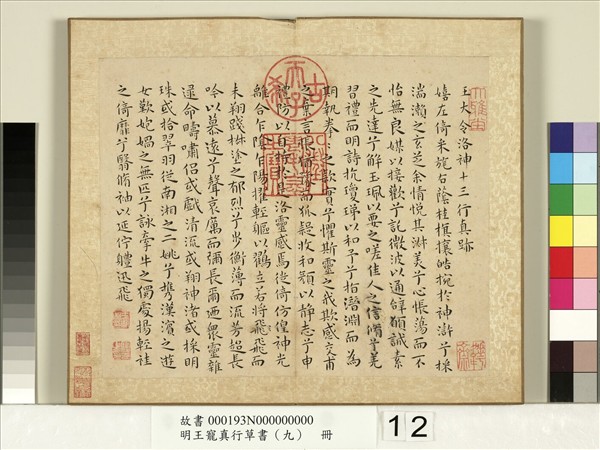 王大令洛神十三行真跡
嬉左倚采旄右蔭桂旗攘皓捥於神滸兮採
湍瀨之玄芝余情悅其淑美兮心振蕩而不
怡無良媒以接歡兮託微波以通辭願誠素
之先達兮解玉珮以要之嗟佳人之信脩兮羌
習禮而明詩抗瓊珶以和予兮指潛淵而為
期執拳:之款實兮懼斯靈之我欺感交甫
之棄言悵猶豫而狐疑收和顏以靜志兮申
禮防以自持於是洛靈感焉徙倚仿偟神光
離合乍陰乍陽擢輕軀以鶴立若將飛而
未翔踐椒塗之郁烈兮步衡薄而流芳超長
吟以慕遠兮聲哀厲而彌長爾迺眾靈雜
遝命疇嘯侶或戲清流或翔神渚或採明
珠或拾翠羽從南湘之二姚兮攜漢濱之遊
女歎媧之無匹兮詠牽牛之獨處揚輕袿
之倚靡兮翳脩袖以延佇體迅飛
古希天子
故書 000193N000000000
明王寵真行草書（九） 冊
12